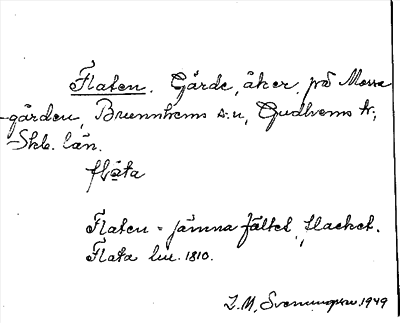 Flaten. Gärde, åker, på Mossa
-gården, Brunnhems s:n, Gudhems h:,
Skb. län.
flăta
Flaten = jämna fältet, slacket.
Flata lur. 1810.
L.M. Svenungsson 1949